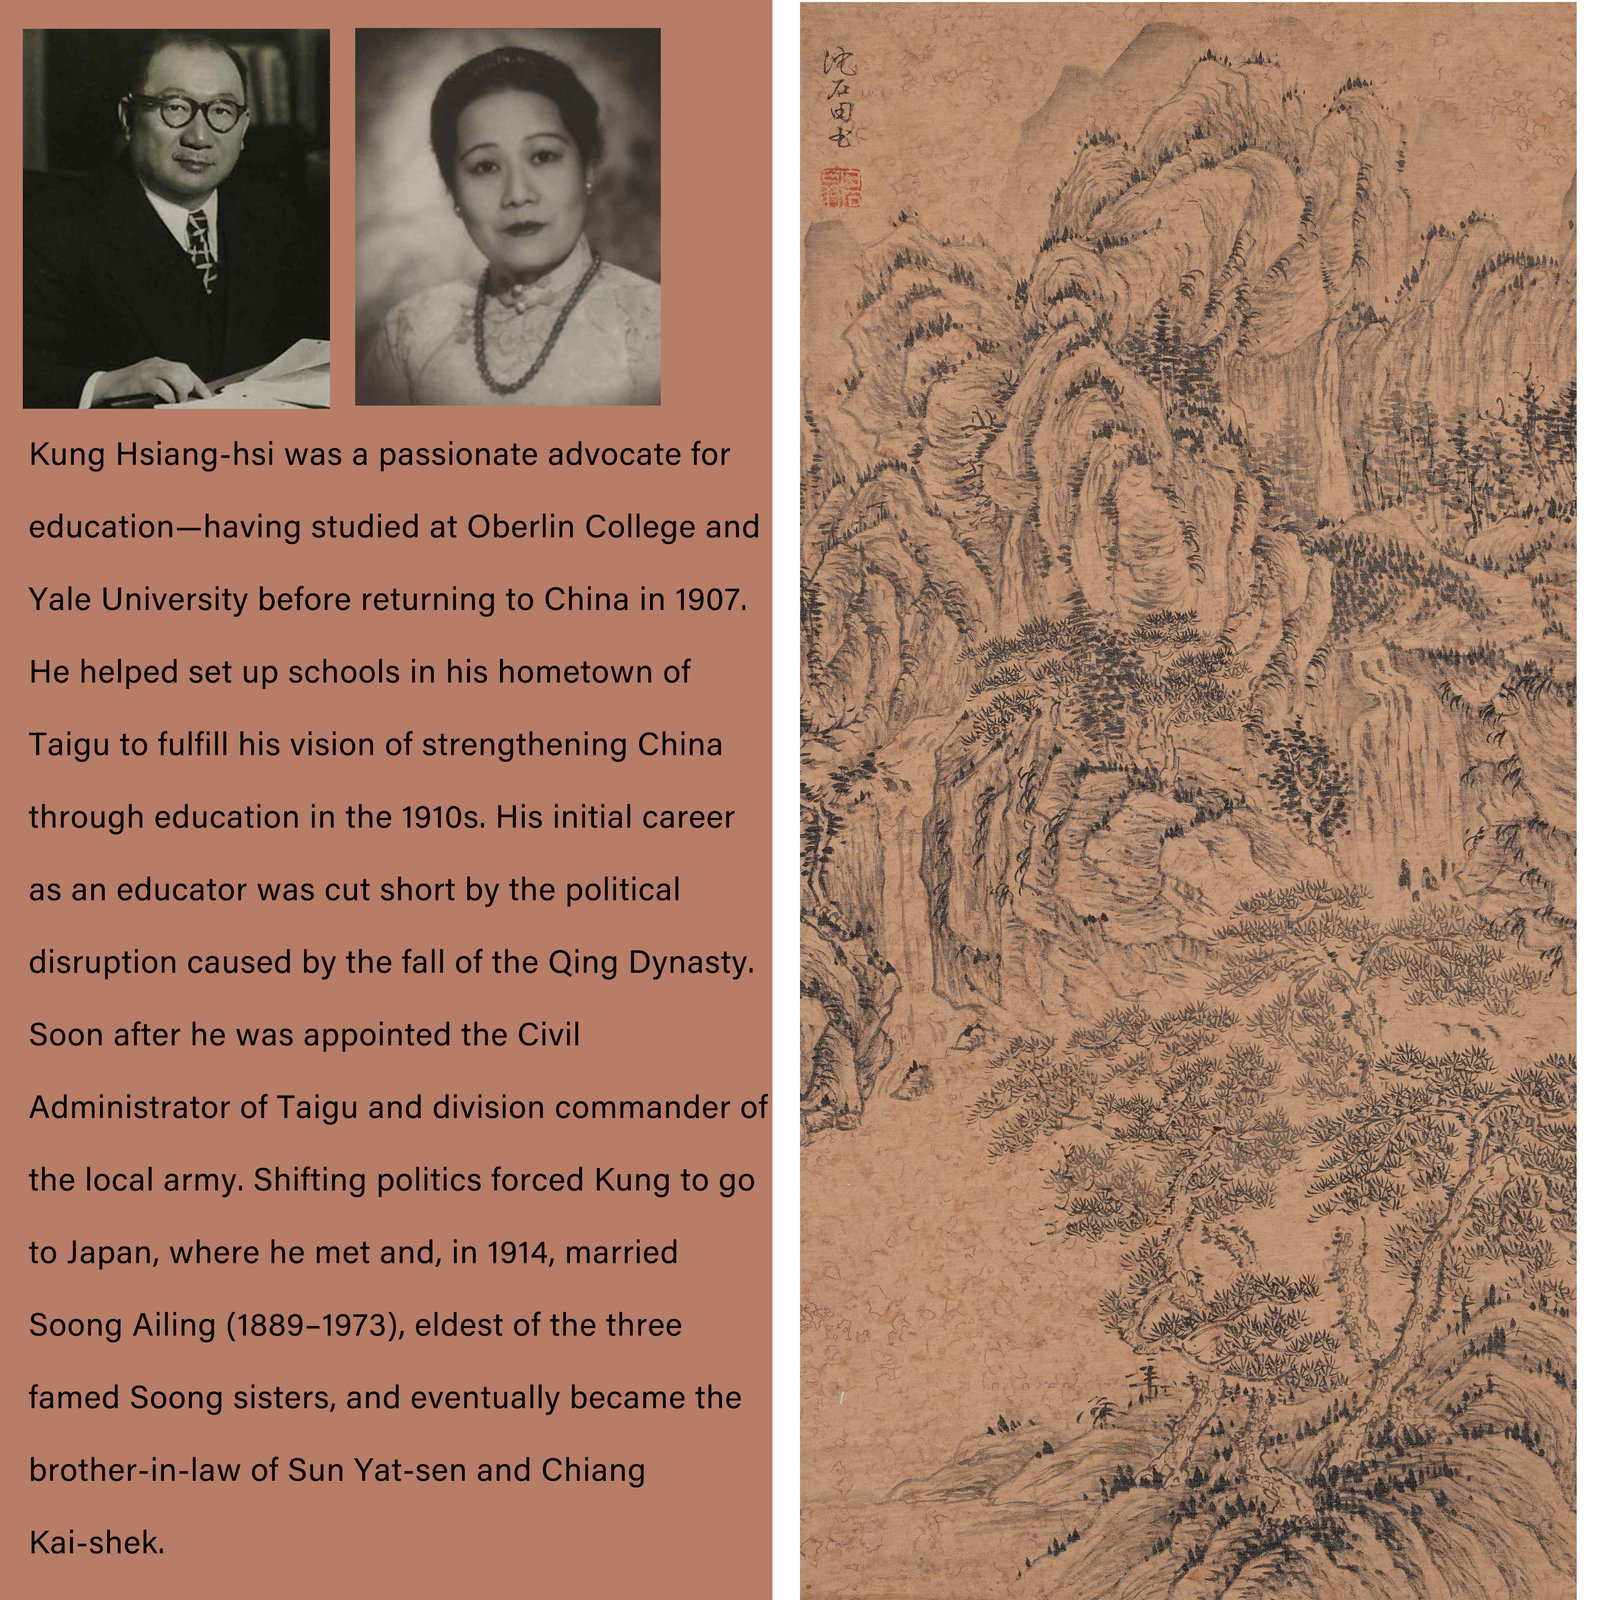 Kung Hsiang-hsi was a passionate advocate for
education—having studied at Oberlin College and
Yale University before returning to China in 1907.
He helped set up schools in his hometown of
Taigu to fulfill his vision of strengthening China
through education in the 1910s. His initial career
as an educator was cut short by the political
disruption caused by the fall of the Qing Dynasty.
Soon after he was appointed the Civil
Administrator of Taigu and division commander of
the local army. Shifting politics forced Kung to go
to Japan, where he met and, in 1914, married
Soong Ailing (1889–1973), eldest of the three
famed Soong sisters, and eventually became the
brother-in-law of Sun Yat-sen and Chiang
Kai-shek.
沈石田